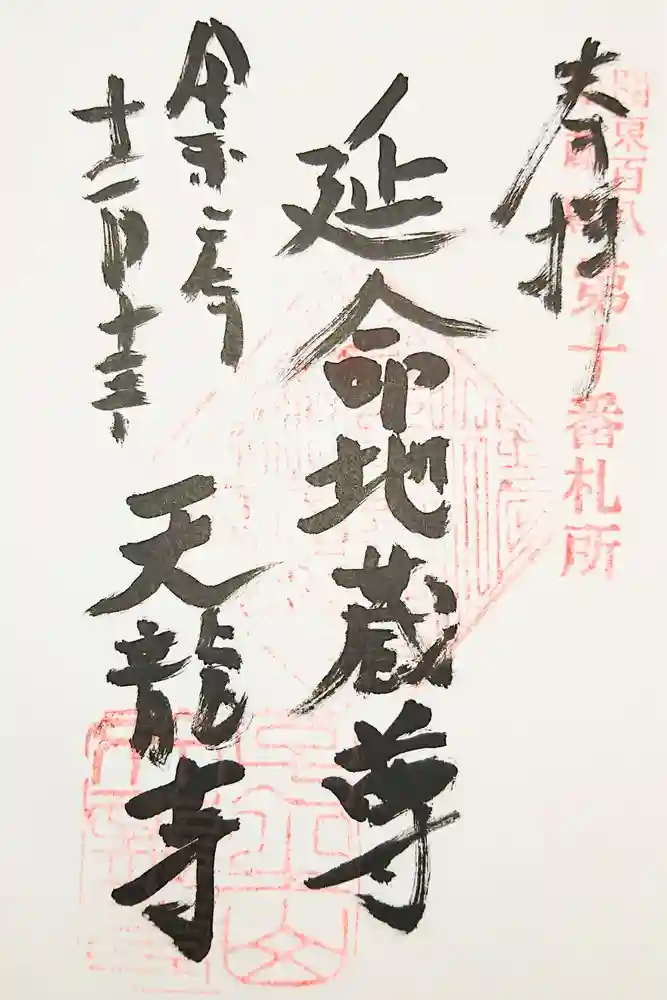 奉拝
関東百八
第十番札所
延命地蔵尊
令和二年
十二月十三日
天龍寺